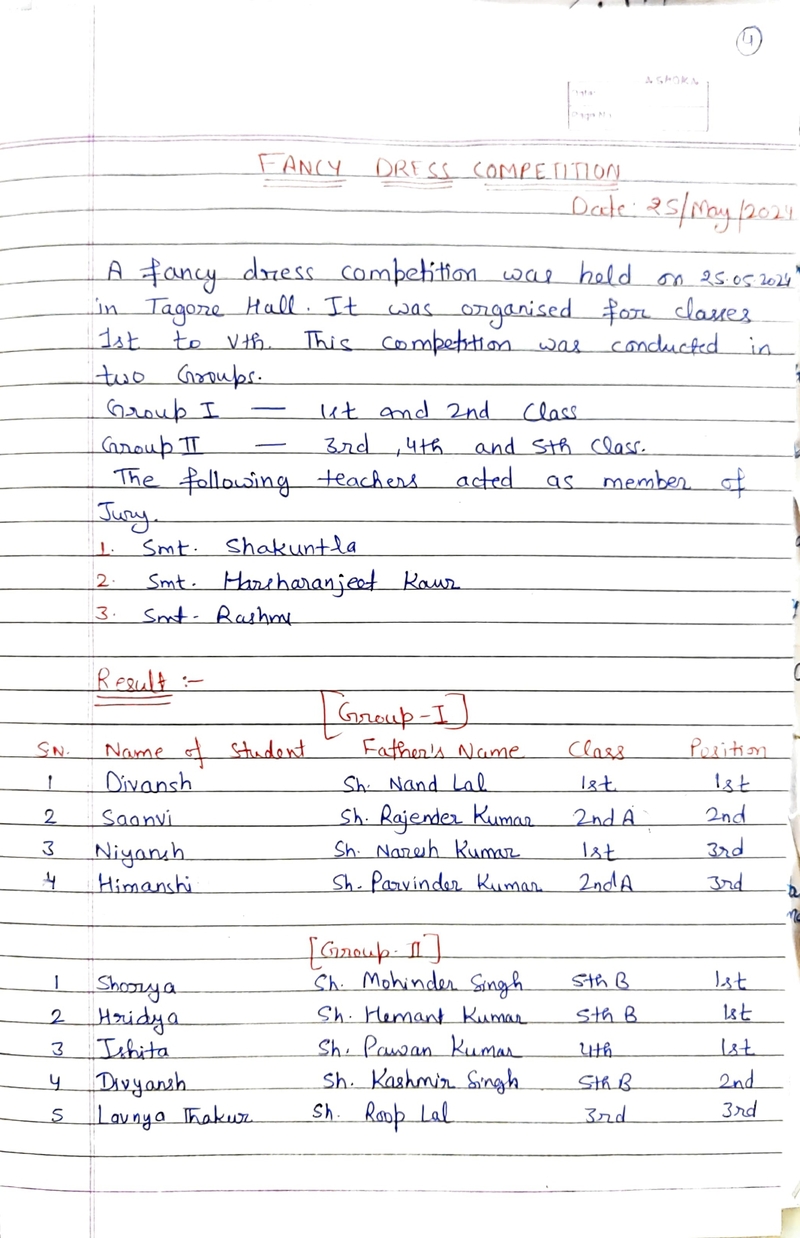 4
ASHOKA
FANCY DRESS COMPETITION
Date: 25/May/2024
A fancy dress competition was held on 25.05.2024
in Tagore Hall. It was organised for classes
1st to Vth. This competition was conducted in
two Groups.
Group I — 1st and 2nd Class
Group II — 3rd, 4th and 5th Class.
The following teachers acted as member of
Jury.
1. Smt. Shakuntla
2. Smt. Harsharanjeet Kaur
3. Smt- Rashmi
Result :-
[Group-I]
SN. Name of Student Father's Name Class Position
1 Divansh Sh. Nand Lal 1st 1st
2 Saanvi Sh. Rajender Kumar 2nd A 2nd
3 Niyansh Sh. Naresh Kumar 1st 3rd
4 Himanshi Sh. Parvinder Kumar 2nd A 3rd
[Group-II]
1 Shorya Sh. Mohinder Singh 5th B 1st
2 Hridya Sh. Hemant Kumar 5th B 1st
3 Ishita Sh. Pawan Kumar 4th 1st
4 Divyansh Sh. Kashmir Singh 5th B 2nd
5 Lavnya Thakur Sh. Roop Lal 3rd 3rd